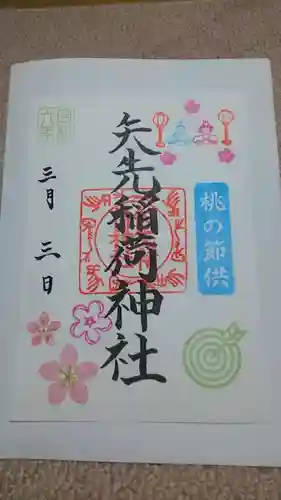 桃の節供
矢先稲荷神社
三月三日